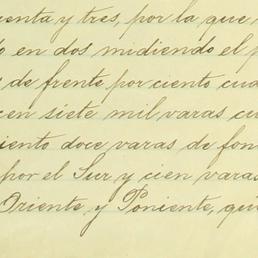 uenta y tres, por la que
o en dos midiendo el p
de frente por ciento cua
cen siete mil varas cu
iento doce varas de fon
por el Sur y cien varas
Oriente y Poniente, que